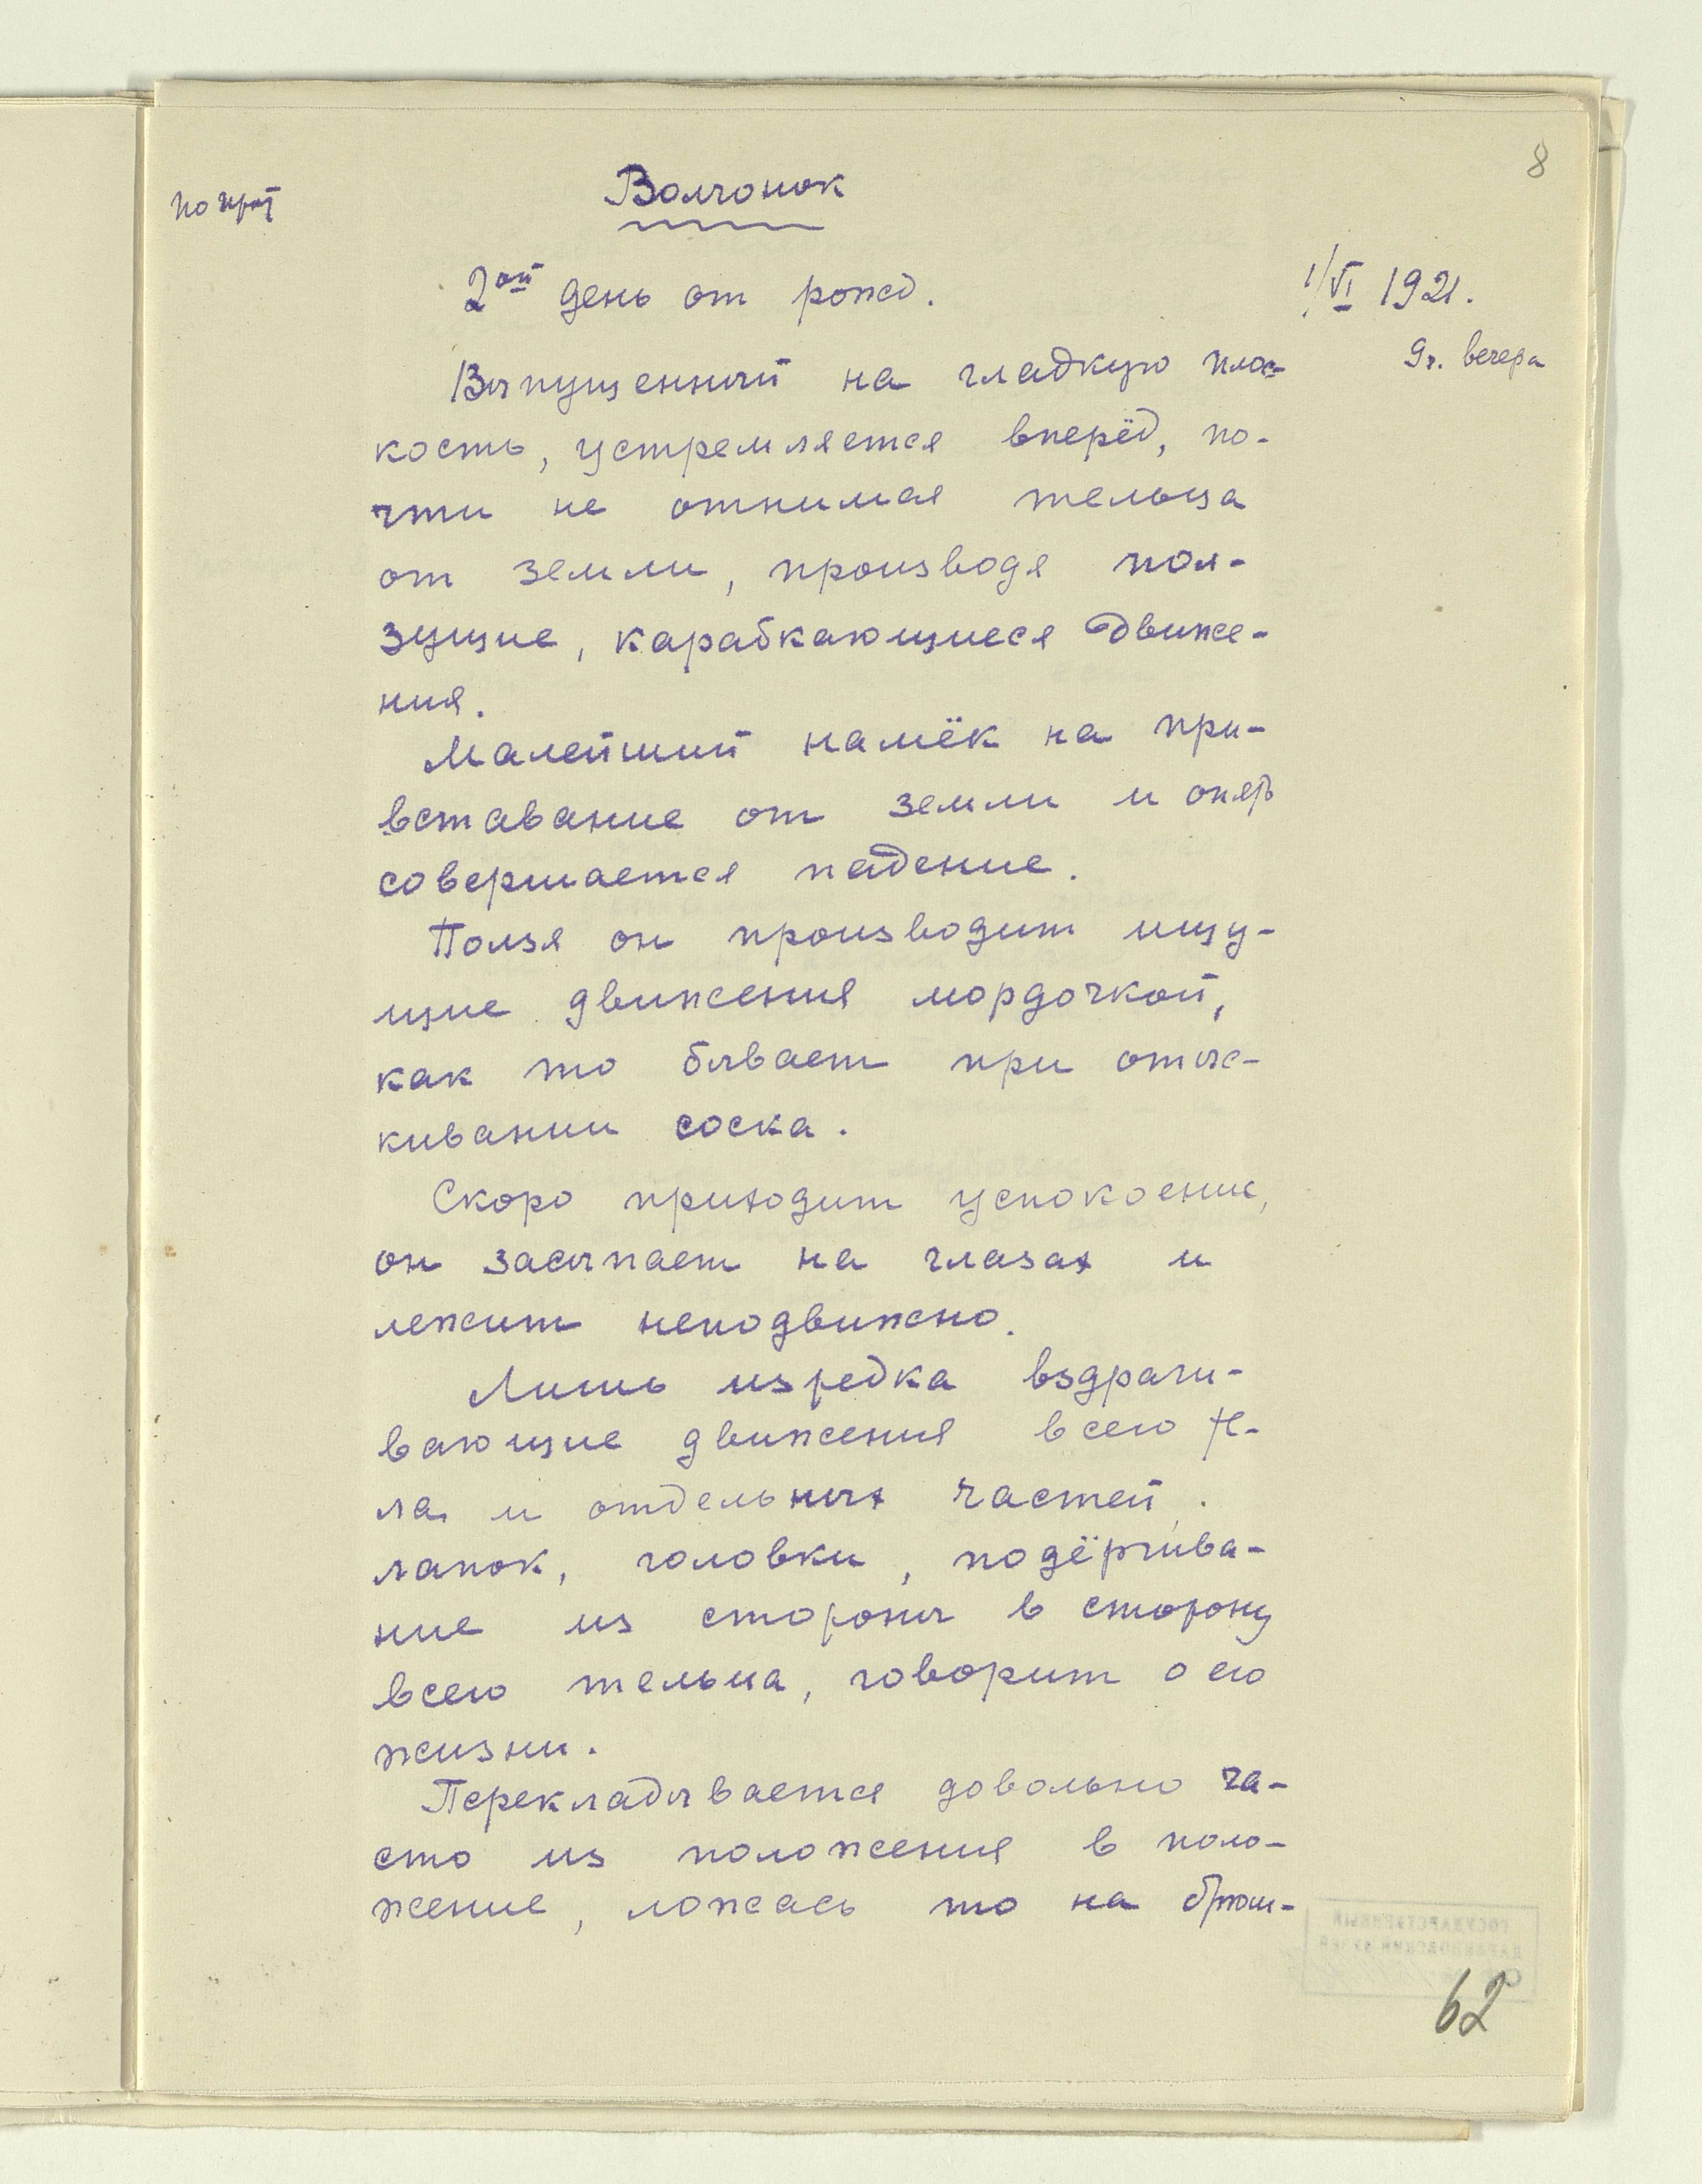 8
Волчонок
2ой день от рожд.
1/VI 1921.
9ч. вечера
Выпущенный на гладкую плос-
кость, устремляется вперёд, по-
чти не отнимая тельца
от земли, производя пол-
зущие, карабкающиеся движе-
ния.
Малейший намёк на при-
вставание от земли и опять
совершается падение.
Ползя он производит ищу-
щие движения мордочкой,
как то бывает при отыс-
кивании соска.
Скоро приходит успокоение,
он засыпает на глазах и
лежит неподвижно.
Лишь изредка вздраги-
вающие движения всего те-
ла и отдельных частей,
лапок, головки, подёргива-
ние из стороны в сторону
всего тельца, говорит о его
жизни.
Перекладывается довольно ча-
сто из положения в поло-
жение, ложась то на брюш-
62